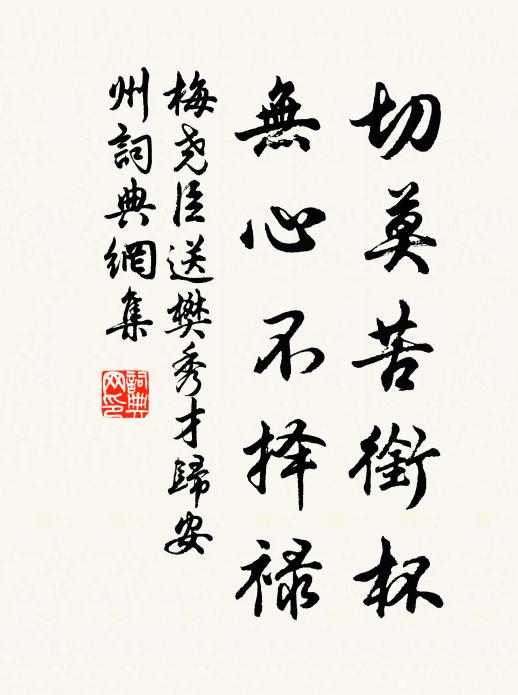 切莫苦銜杯
無心不择禄
梅尧臣送樊秀才歸安
州詞典網集
詞典
网印